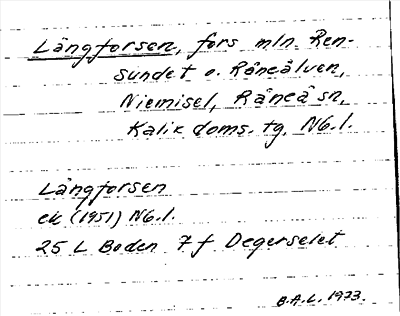 Långforsen, fors mln. Ren-
sundet o. Råneälven,
Niemisel, Råneå sn,
Kalix doms. tg. Nb.l.
Långforsen
ek (1951) Nb.l.
25 L Boden 7 f Degerselet
B.A.L. 1973.